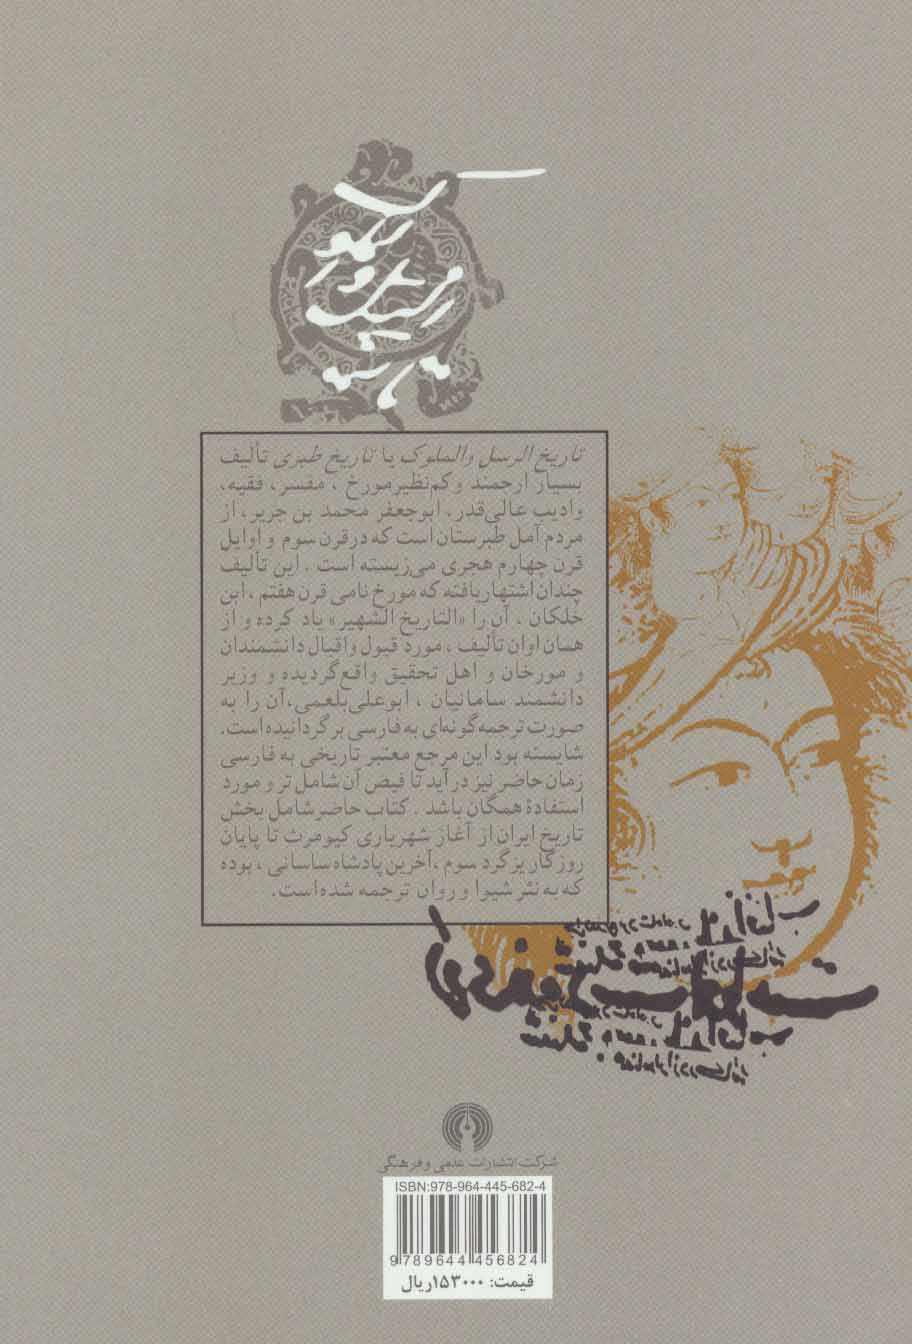 تاریخ الرسل والملوک یا تاریخ طبری تألیف
بسیار ارجمند و کم‌نظیر مورخ ، مفسر، فقیه،
وادیب عالی‌قدر، ابوجعفر محمد بن جریر، از
مردم آمل طبرستان است که در قرن سوم و اوایل
قرن چهارم هجری می‌زیسته است . این تألیف
چندان اشتهار یافته که مورخ نامی قرن هفتم ، ابن
خلکان ، آن را «التاریخ الشهیر» یاد کرده و از
همان اوان تألیف ، مورد قبول واقبال دانشمندان
و مورخان و اهل تحقیق واقع گردیده و وزیر
دانشمند سامانیان ، ابوعلی‌بلعمی،آن را به
صورت ترجمه‌گونه‌ای به فارسی برگردانیده‌است.
شایسته بود این مرجع معتبر تاریخی به فارسی
زمان حاضر نیز در آید تا فیض آن شامل تر و مورد
استفادهٔ همگان باشد . کتاب حاضر شامل بخش
تاریخ ایران از آغاز شهریاری کیومرث تا پایان
روزگار یزگرد سوم ،آخرین پادشاه ساسانی ، بوده
که به نثر شیوا و روان ترجمه شده‌است.
شرکت انتشارات علمی و فرهنگی
ISBN:978-964-445-682-4
9 789644 456824
قیمت: ۱۵۳۰۰۰ ریال